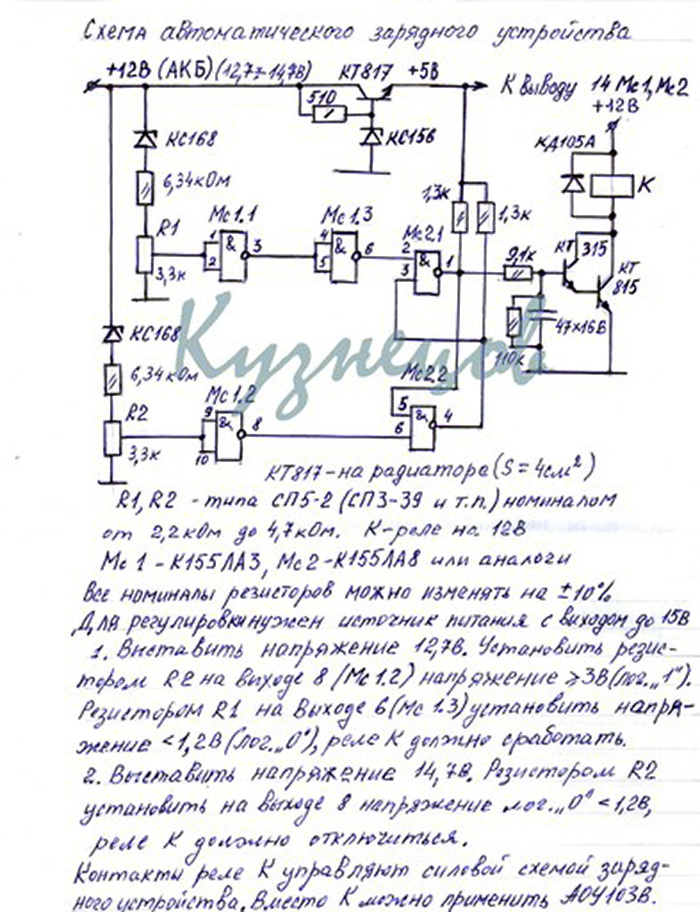 Схема автоматического зарядного устройства
+12В (АКБ) (12,7÷14,7В) КТ817 +5В К выводу 14 Мс1, Мс2
+12В
510
КС168 КС156 КД105А
К
6,34кОм 1,3к 1,3к
R1 Мс1.1 Мс1.3 Мс2.1
1 & 3 4 & 6 2 & 1 9,1к КТ 315 КТ
2 5 3 815
3,3к
КС168 47х16В
110к
6,34кОм Мс1.2 Мс2.2
R2 9 & 8 5 & 4
3,3к 10 6
Кузнецов
КТ817-на радиатора (S = 4см²)
R1, R2 - типа СП5-2 (СП3-39 и т.п.) номиналом
от 2,2кОм до 4,7кОм. К-реле на 12В
Мс1 - К155ЛА3, Мс2-К155ЛА8 или аналоги
Все номиналы резисторов можно изменять на ±10%
Для регулировки нужен источник питания с выходом до 15В
1. Выставить напряжение 12,7В. Установить резис-
тором R2 на выходе 8 (Мс1.2) напряжение ≥3В(лог. „1").
Резистором R1 на выходе 6(Мс1.3) установить напря-
жение <1,2В (лог. „0"), реле К должно сработать.
2. Выставить напряжение 14,7В. Резистором R2
установить на выходе 8 напряжение лог. „0" <1,2В,
реле К должно отключиться.
Контакты реле К управляют силовой схемой заряд-
ного устройства. Вместо К можно применить АОУ103В.